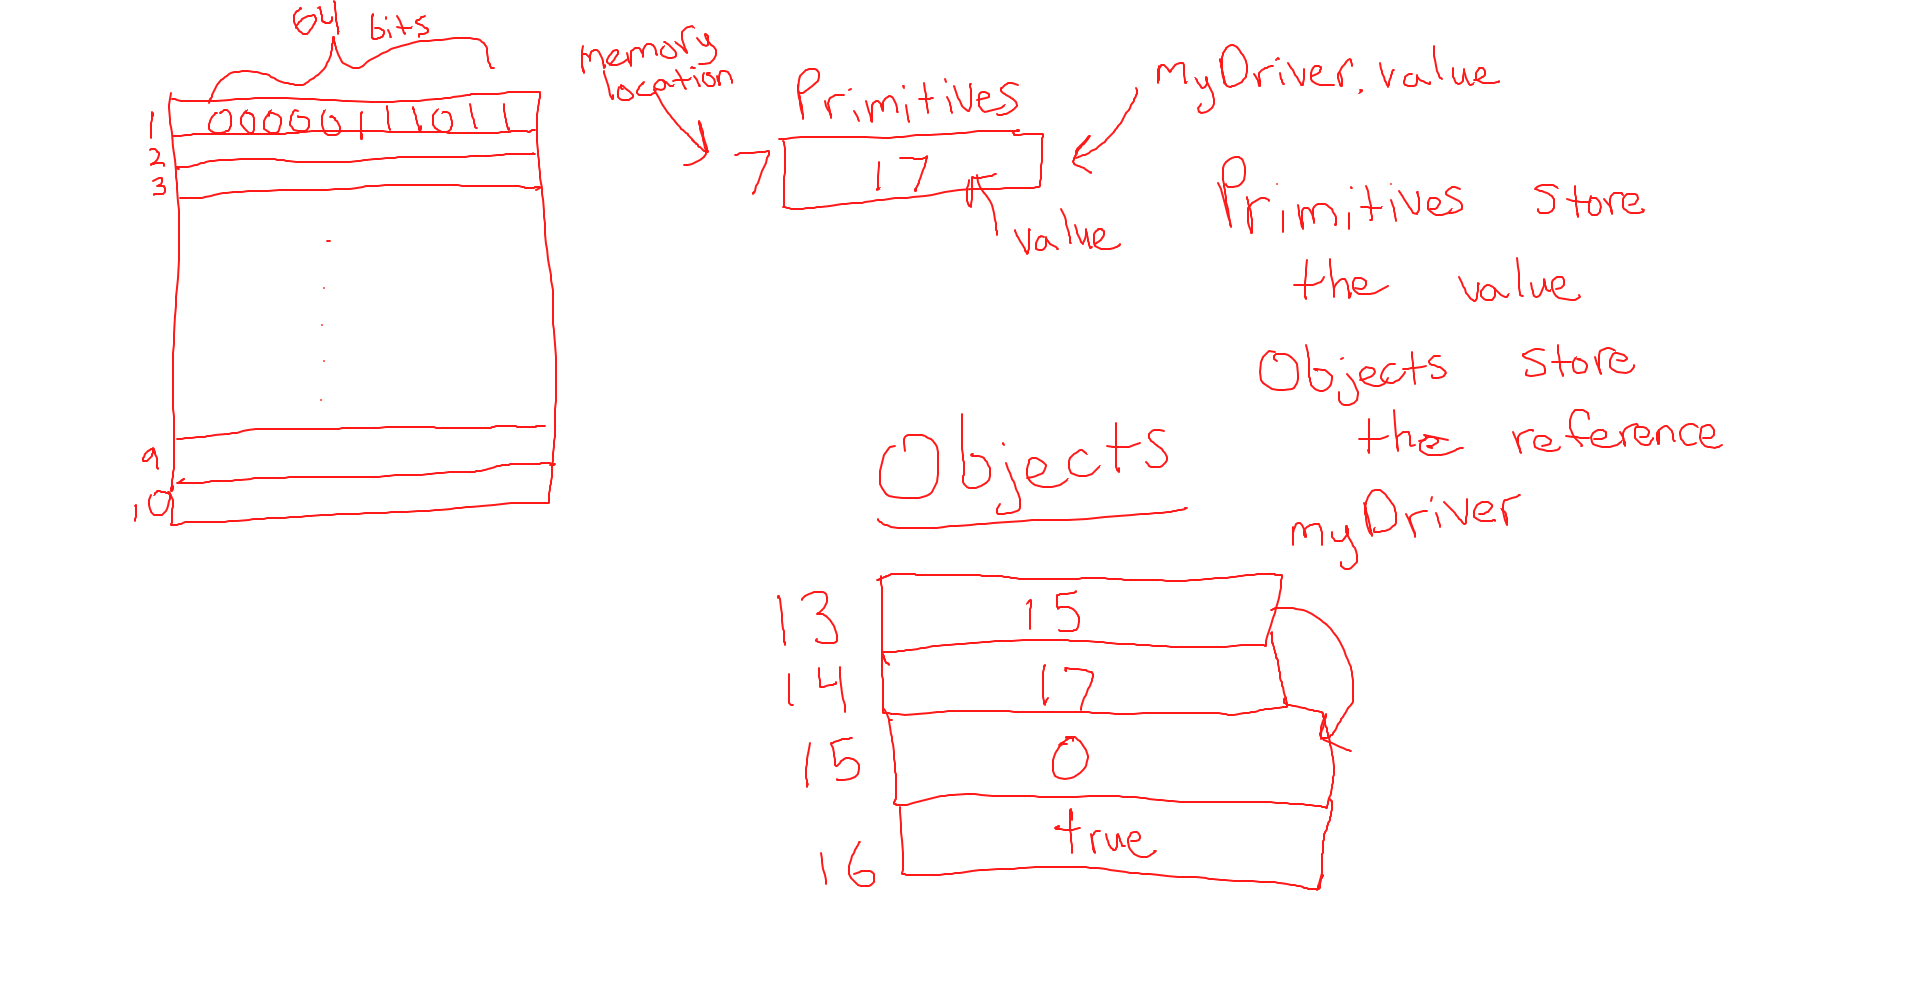 64 bits
1 00000111011
2
3
9
10
memory
location
Primitives
7 17
value
myDriver.value
Primitives store
the value
Objects store
the reference
Objects
myDriver
13 15
14 17
15 0
16 true